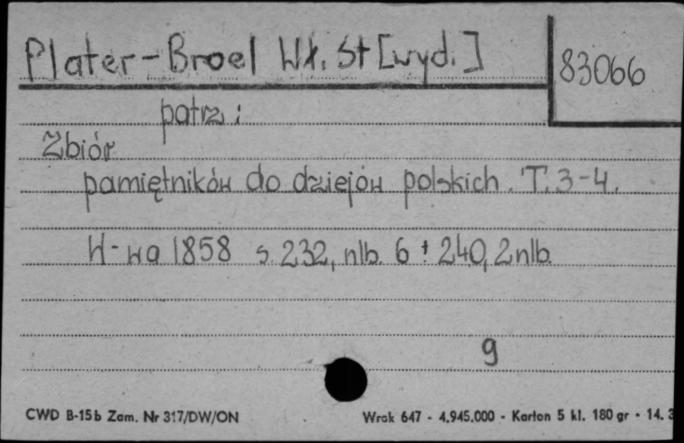 Plater-Broel Wł. St [wyd.]
83066
patrz:
Zbiór
pamiętników do dziejów polskich. T. 3-4.
W-wa 1858 s. 232, nlb. 6 + 240, 2 nlb.
9
CWD B-15b Zam. Nr 317/DW/ON
Wrak 647 - 4.945.000 - Karton 5 kl. 180 gr - 14. 3